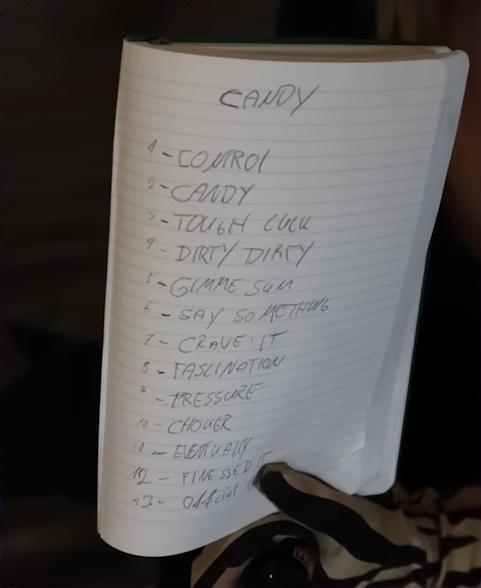 CANDY
1 - CONTROL
2 - CANDY
3 - TOUGH LUCK
4 - DIRTY DIRTY
5 - GIMME SUM
6 - SAY SOMETHING
7 - CRAVE IT
8 - FASCINATION
9 - PRESSURE
10 - CHOKER
11 - EVENTUALLY
12 - FINESSED IT
13 - Official